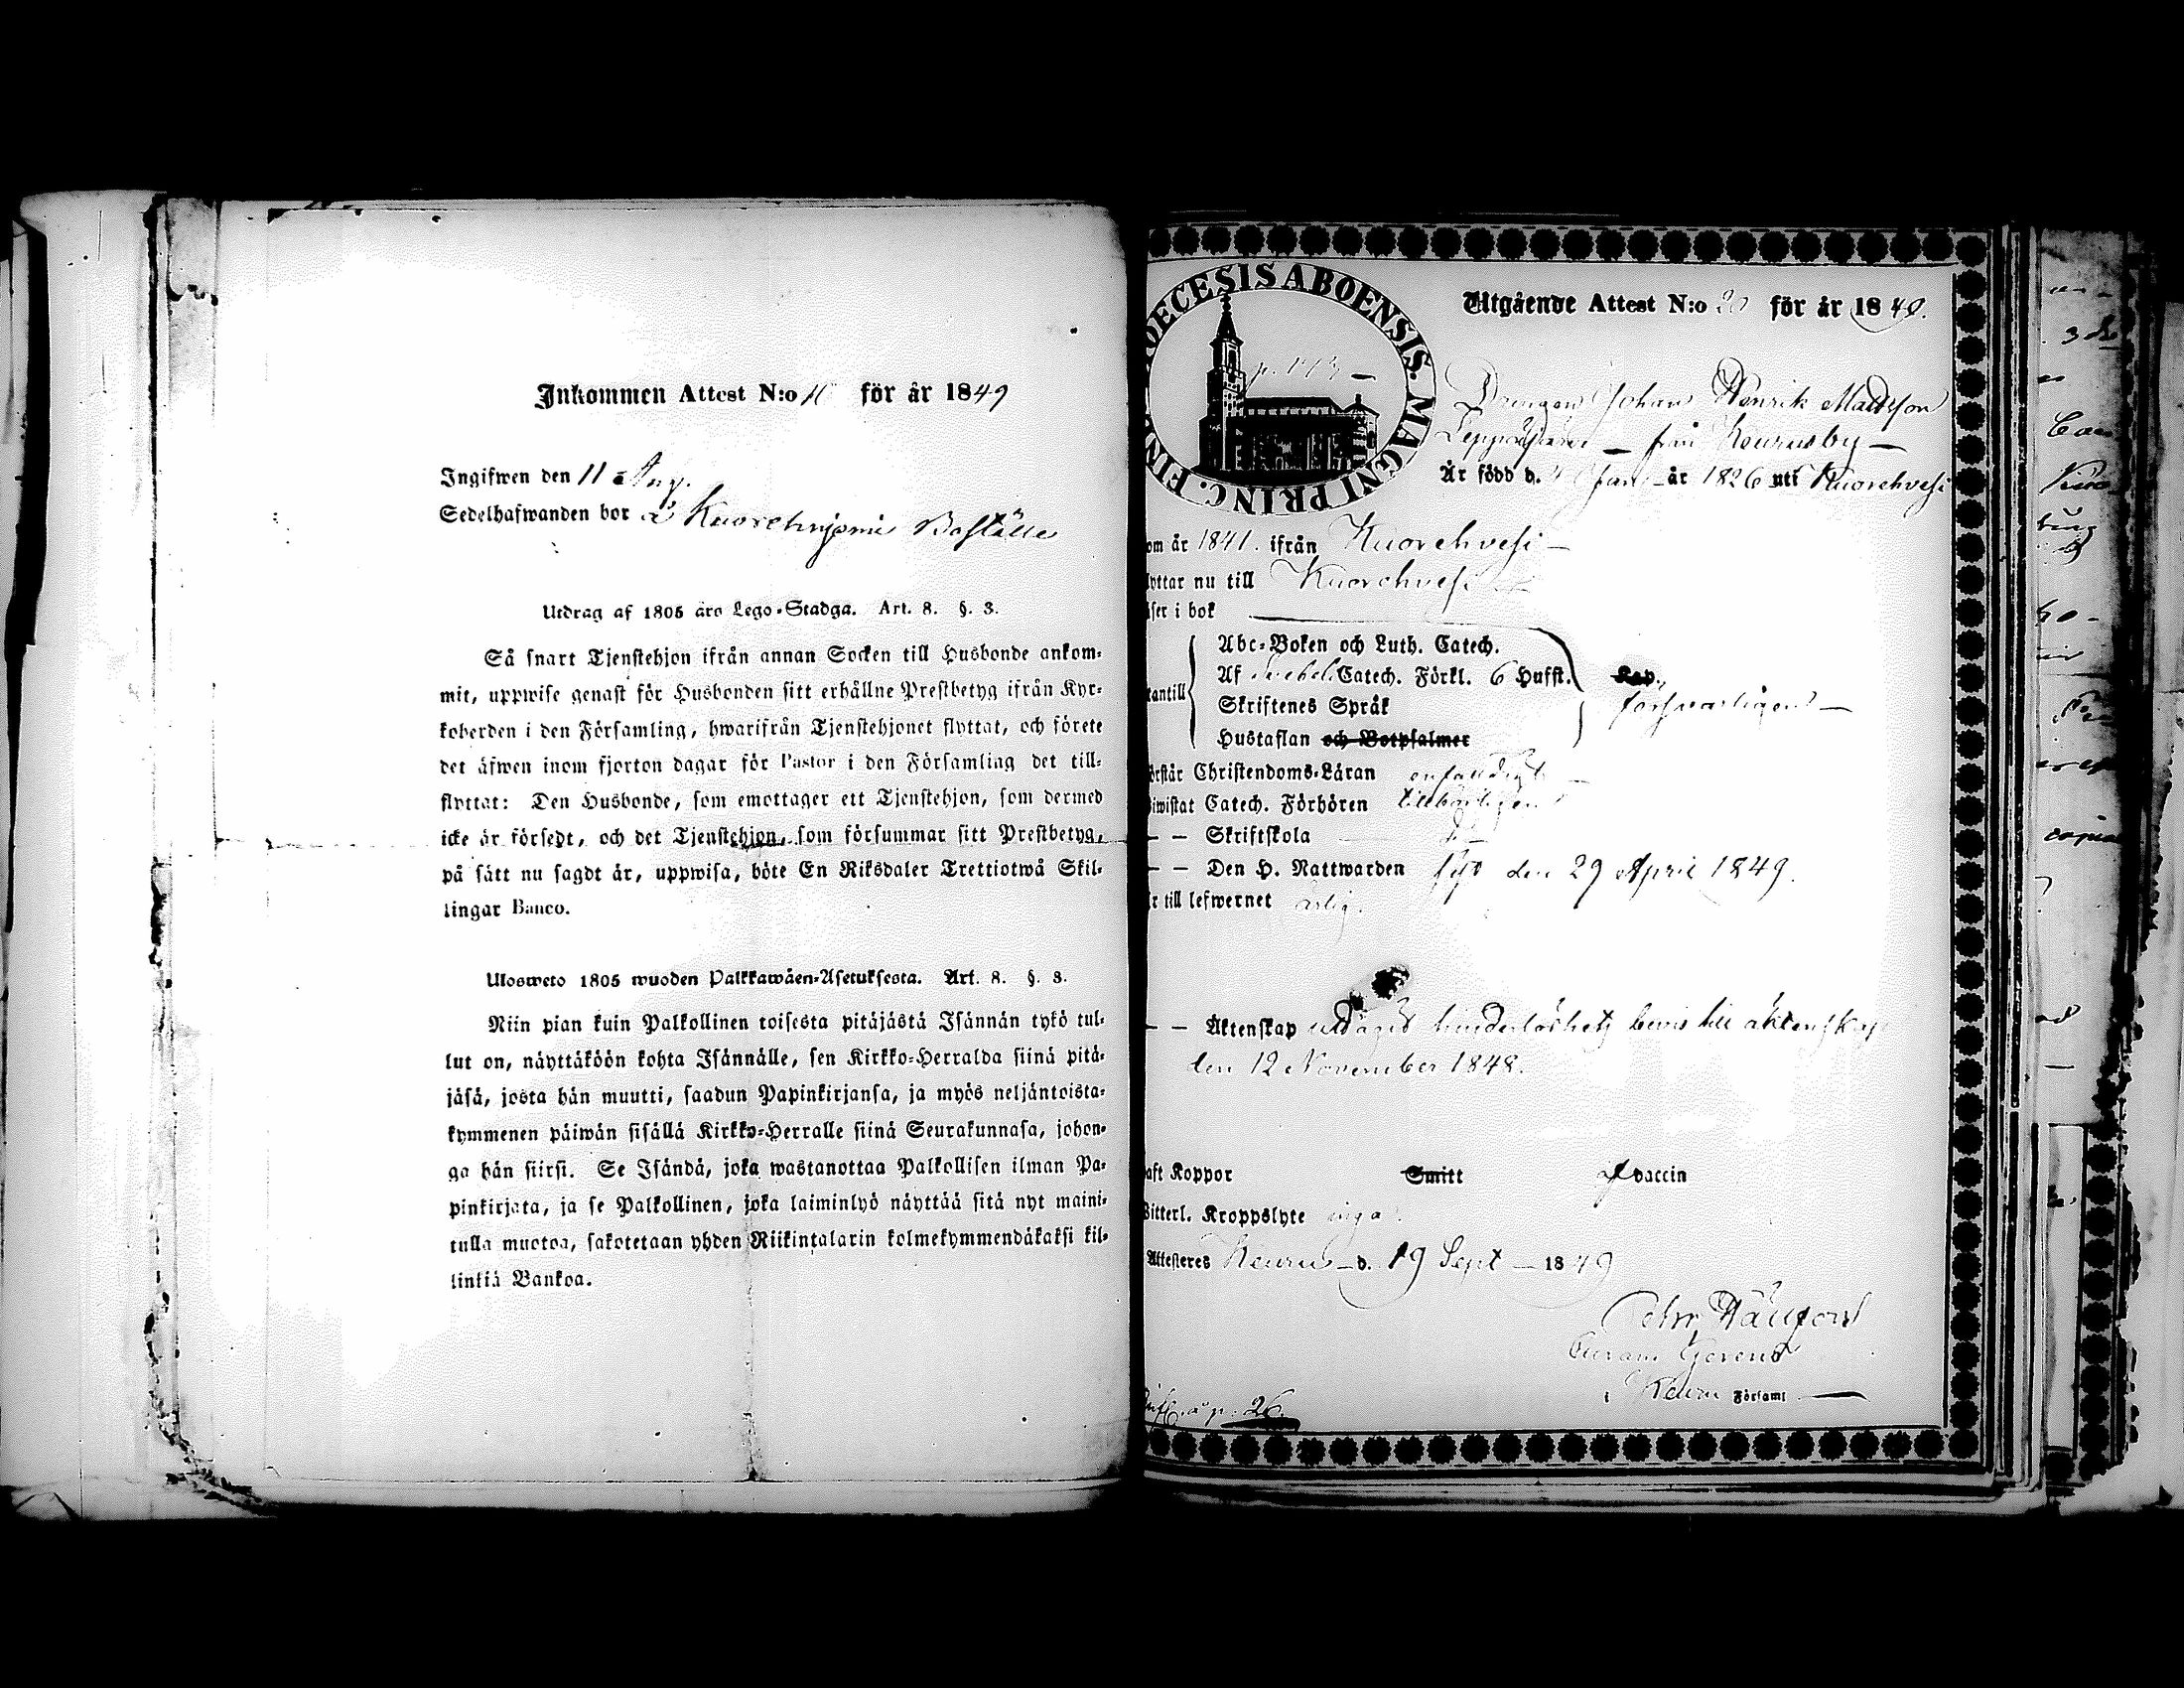 Inkommen Attest N:o för år 1849
Ingifwen den 11 Aug.
Sedelhafwanden bor å Boställe
Utdrag af 1805 års Lego-Stadga. Art. 8. §. 3.
Så snart Tjenstehjon ifrån annan Socken till Husbonde ankom-
mit, uppwise genast för Husbonden sitt erhållne Prestbetyg ifrån Kyr-
koherden i den Församling, hwarifrån Tjenstehjonet flyttat, och förete
det äfwen inom fjorton dagar för Pastor i den Församling det till-
flyttat: Den Husbonde, som emottager ett Tjenstehjon, som dermed
icke är försedt, och det Tjenstehjon, som försummar sitt Prestbetyg,
på sätt nu sagdt är, uppwisa, böte En Riksdaler Trettiotwå Skil-
lingar Banco.
Ulosweto 1805 wuoden Palkkawäen-Asetuksesta. Art. 8. §. 3.
Niin pian kuin Palkollinen toisesta pitäjästä Isännän tykö tul-
lut on, näyttäköön kohta Isännälle, sen Kirkko-Herralda siinä pitä-
jäsä, josta hän muutti, saadun Papinkirjansa, ja myös neljäntoista-
kymmenen päiwän sisällä Kirkko-Herralle siinä Seurakunnasa, johon-
ga hän siirsi. Se Isändä, joka wastanottaa Palkollisen ilman Pa-
pinkirjata, ja se Palkollinen, joka laiminlyö näyttää sitä nyt maini-
tulla muotoa, sakotetaan yhden Riikintalarin kolmekymmendäkaksi kil-
linkiä Bankoa.
DECESIS ABOENSIS. MAGNI PRINC. FIN
Utgående Attest N:o 20 för år 1849.
Drängen Johan Henrik Mattsson
från Keuruuby
Är född d. Jan år 1826 uti Kuorehvesi
om år 1841. ifrån Kuorehvesi
lyttar nu till Kuorehvesi
äser i bok
Abc-Boken och Luth. Catech.
Af Svebel. Catech. Förkl. 6 Hufst.
tantill
Skriftenes Språk försvarligen
Hustaflan och Botpsalmer
örstår Christendoms-Läran enfaldigt
Biwistat Catech. Förhören tillbörligen
— — Skriftskola do
— — Den H. Nattwarden sist den 29 April 1849.
r till lefwernet ärlig.
— — Äktenskap uttagit hinderlöshets bevis till äktenskap
den 12 November 1848.
aft Koppor Smitt vaccin
Witterl. Kroppslyte inga.
Attesteres Keuru d. 19 Sept 1849
Petr.
Curam Gerens
i Keuru Församl
p. 26.